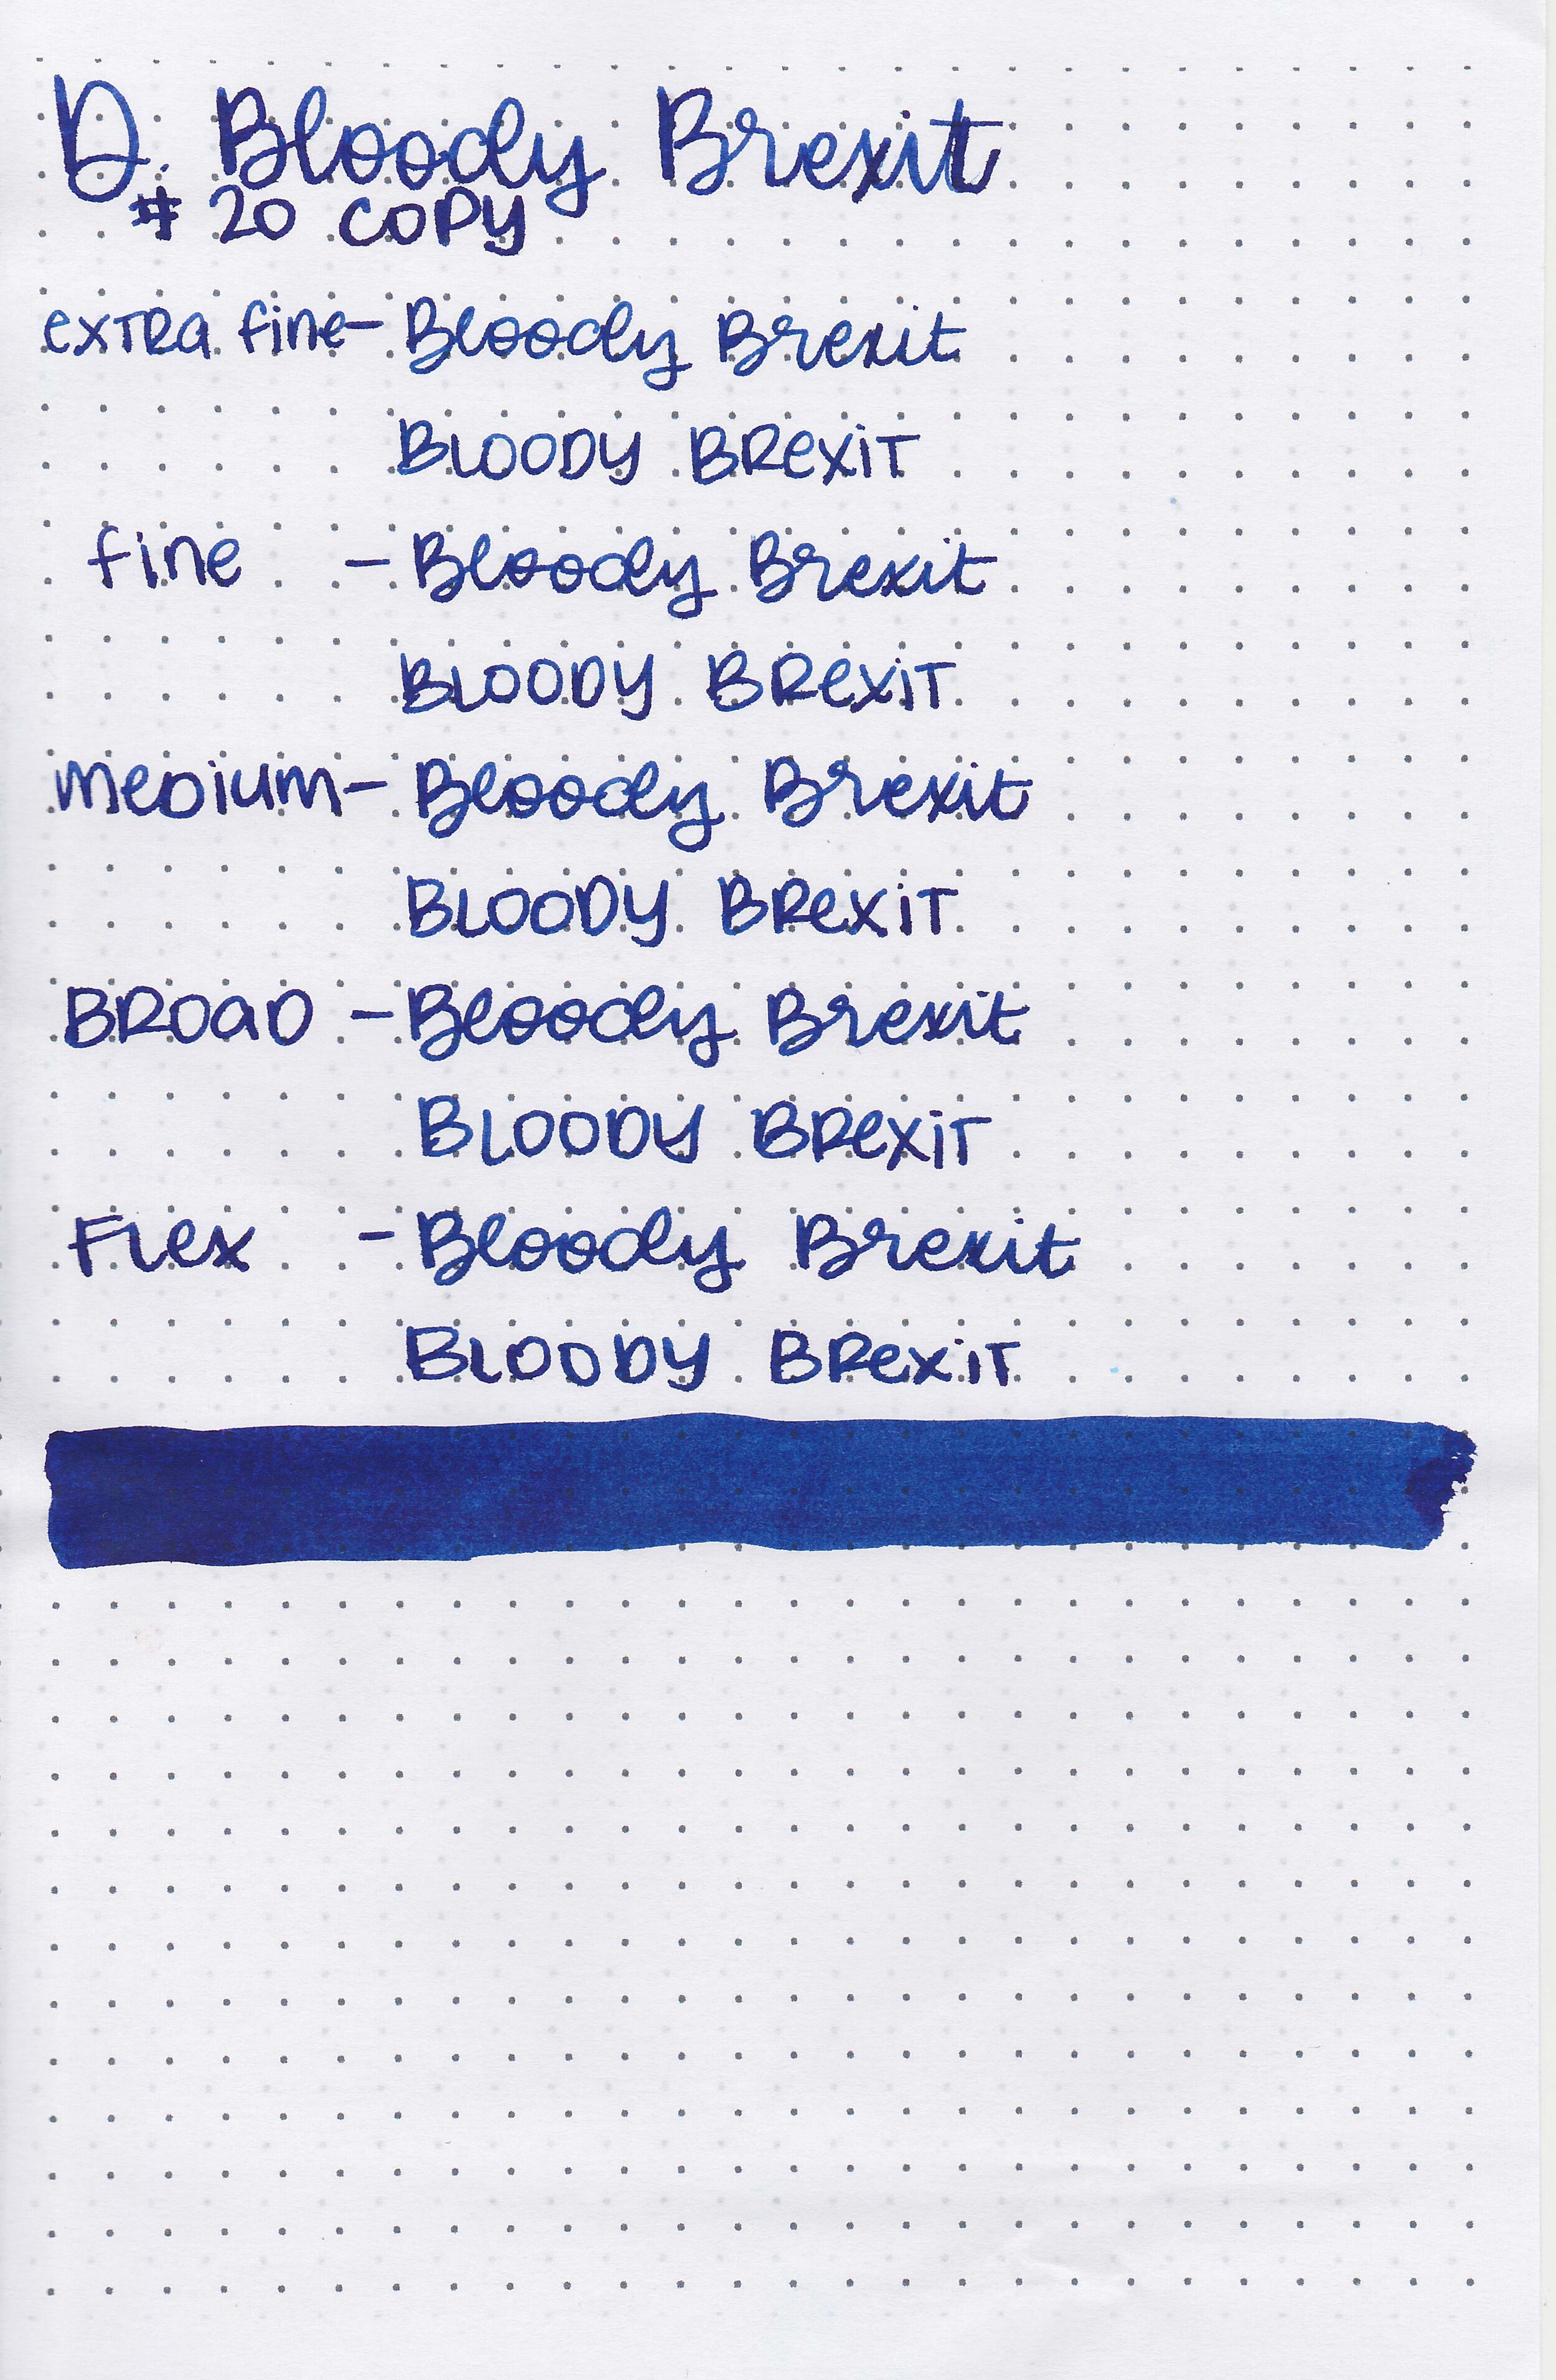 D. Bloody Brexit
# 20 COPY
exTRa fine - Bloody Brexit
BLOODY BRexiT
fine - Bloody Brexit
BLOODY BRexiT
meDium - Bloody Brexit
BLOODY BRexiT
BROaD - Bloody Brexit
BLOODY BRexiT
Flex - Bloody Brexit
BLOODY BRexiT